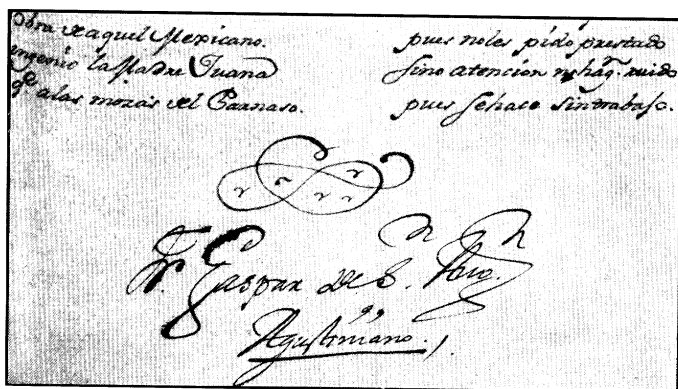 Obra de aquel Mexicano.
ingenio la Madre Juana
qe. a las mozas del Parnaso.
pues no les pido prestado
sino atencion haga. ruido
pues se hace sin trabajo.
Fr. Gaspar de S.
Agustiniano.